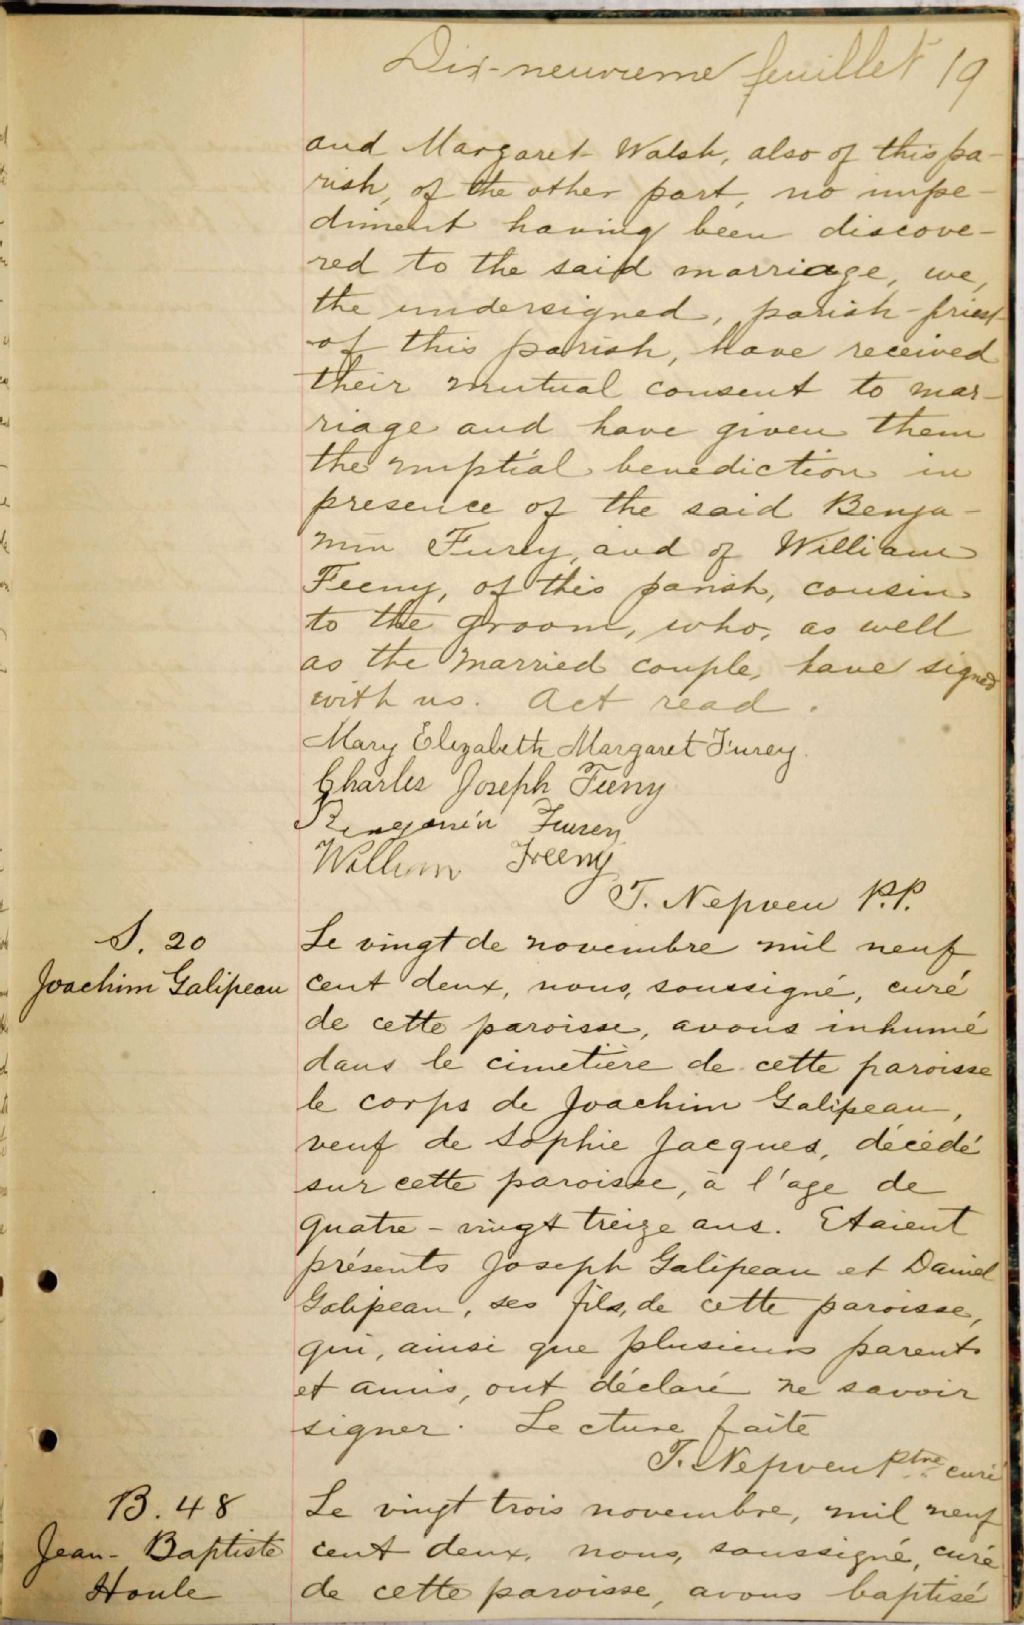 Dix-neuvieme feuillet 19
and Margaret Walsh, also of this pa-
rish, of the other part, no impe-
diment having been discove-
red to the said marriage, we,
the undersigned, parish-priest
of this parish, have received
their mutual consent to mar-
riage and have given them
the nuptial benediction in
presence of the said Benja-
min Furey, and of William
Feeny, of this parish, cousin
to the groom, who, as well
as the married couple, have signed
with us. Act read.
Mary Elizabeth Margaret Furey.
Charles Joseph Feeny
Benjamin Furey
William Feeny
T. Nepveu P.P.
S. 20
Joachim Galipeau
Le vingt de novembre mil neuf
cent deux, nous, soussigné, curé
de cette paroisse, avons inhumé
dans le cimetière de cette paroisse
le corps de Joachim Galipeau,
veuf de Sophie Jacques, décédé
sur cette paroisse, à l'age de
quatre-vingt treize ans. Etaient
présents Joseph Galipeau et Daniel
Galipeau, ses fils, de cette paroisse,
qui, ainsi que plusieurs parents
et amis, ont déclaré ne savoir
signer. Lecture faite
T. Nepveu Ptre curé
B. 48
Jean-Baptiste
Houle
Le vingt trois novembre, mil neuf
cent deux, nous, soussigné, curé
de cette paroisse, avons baptisé